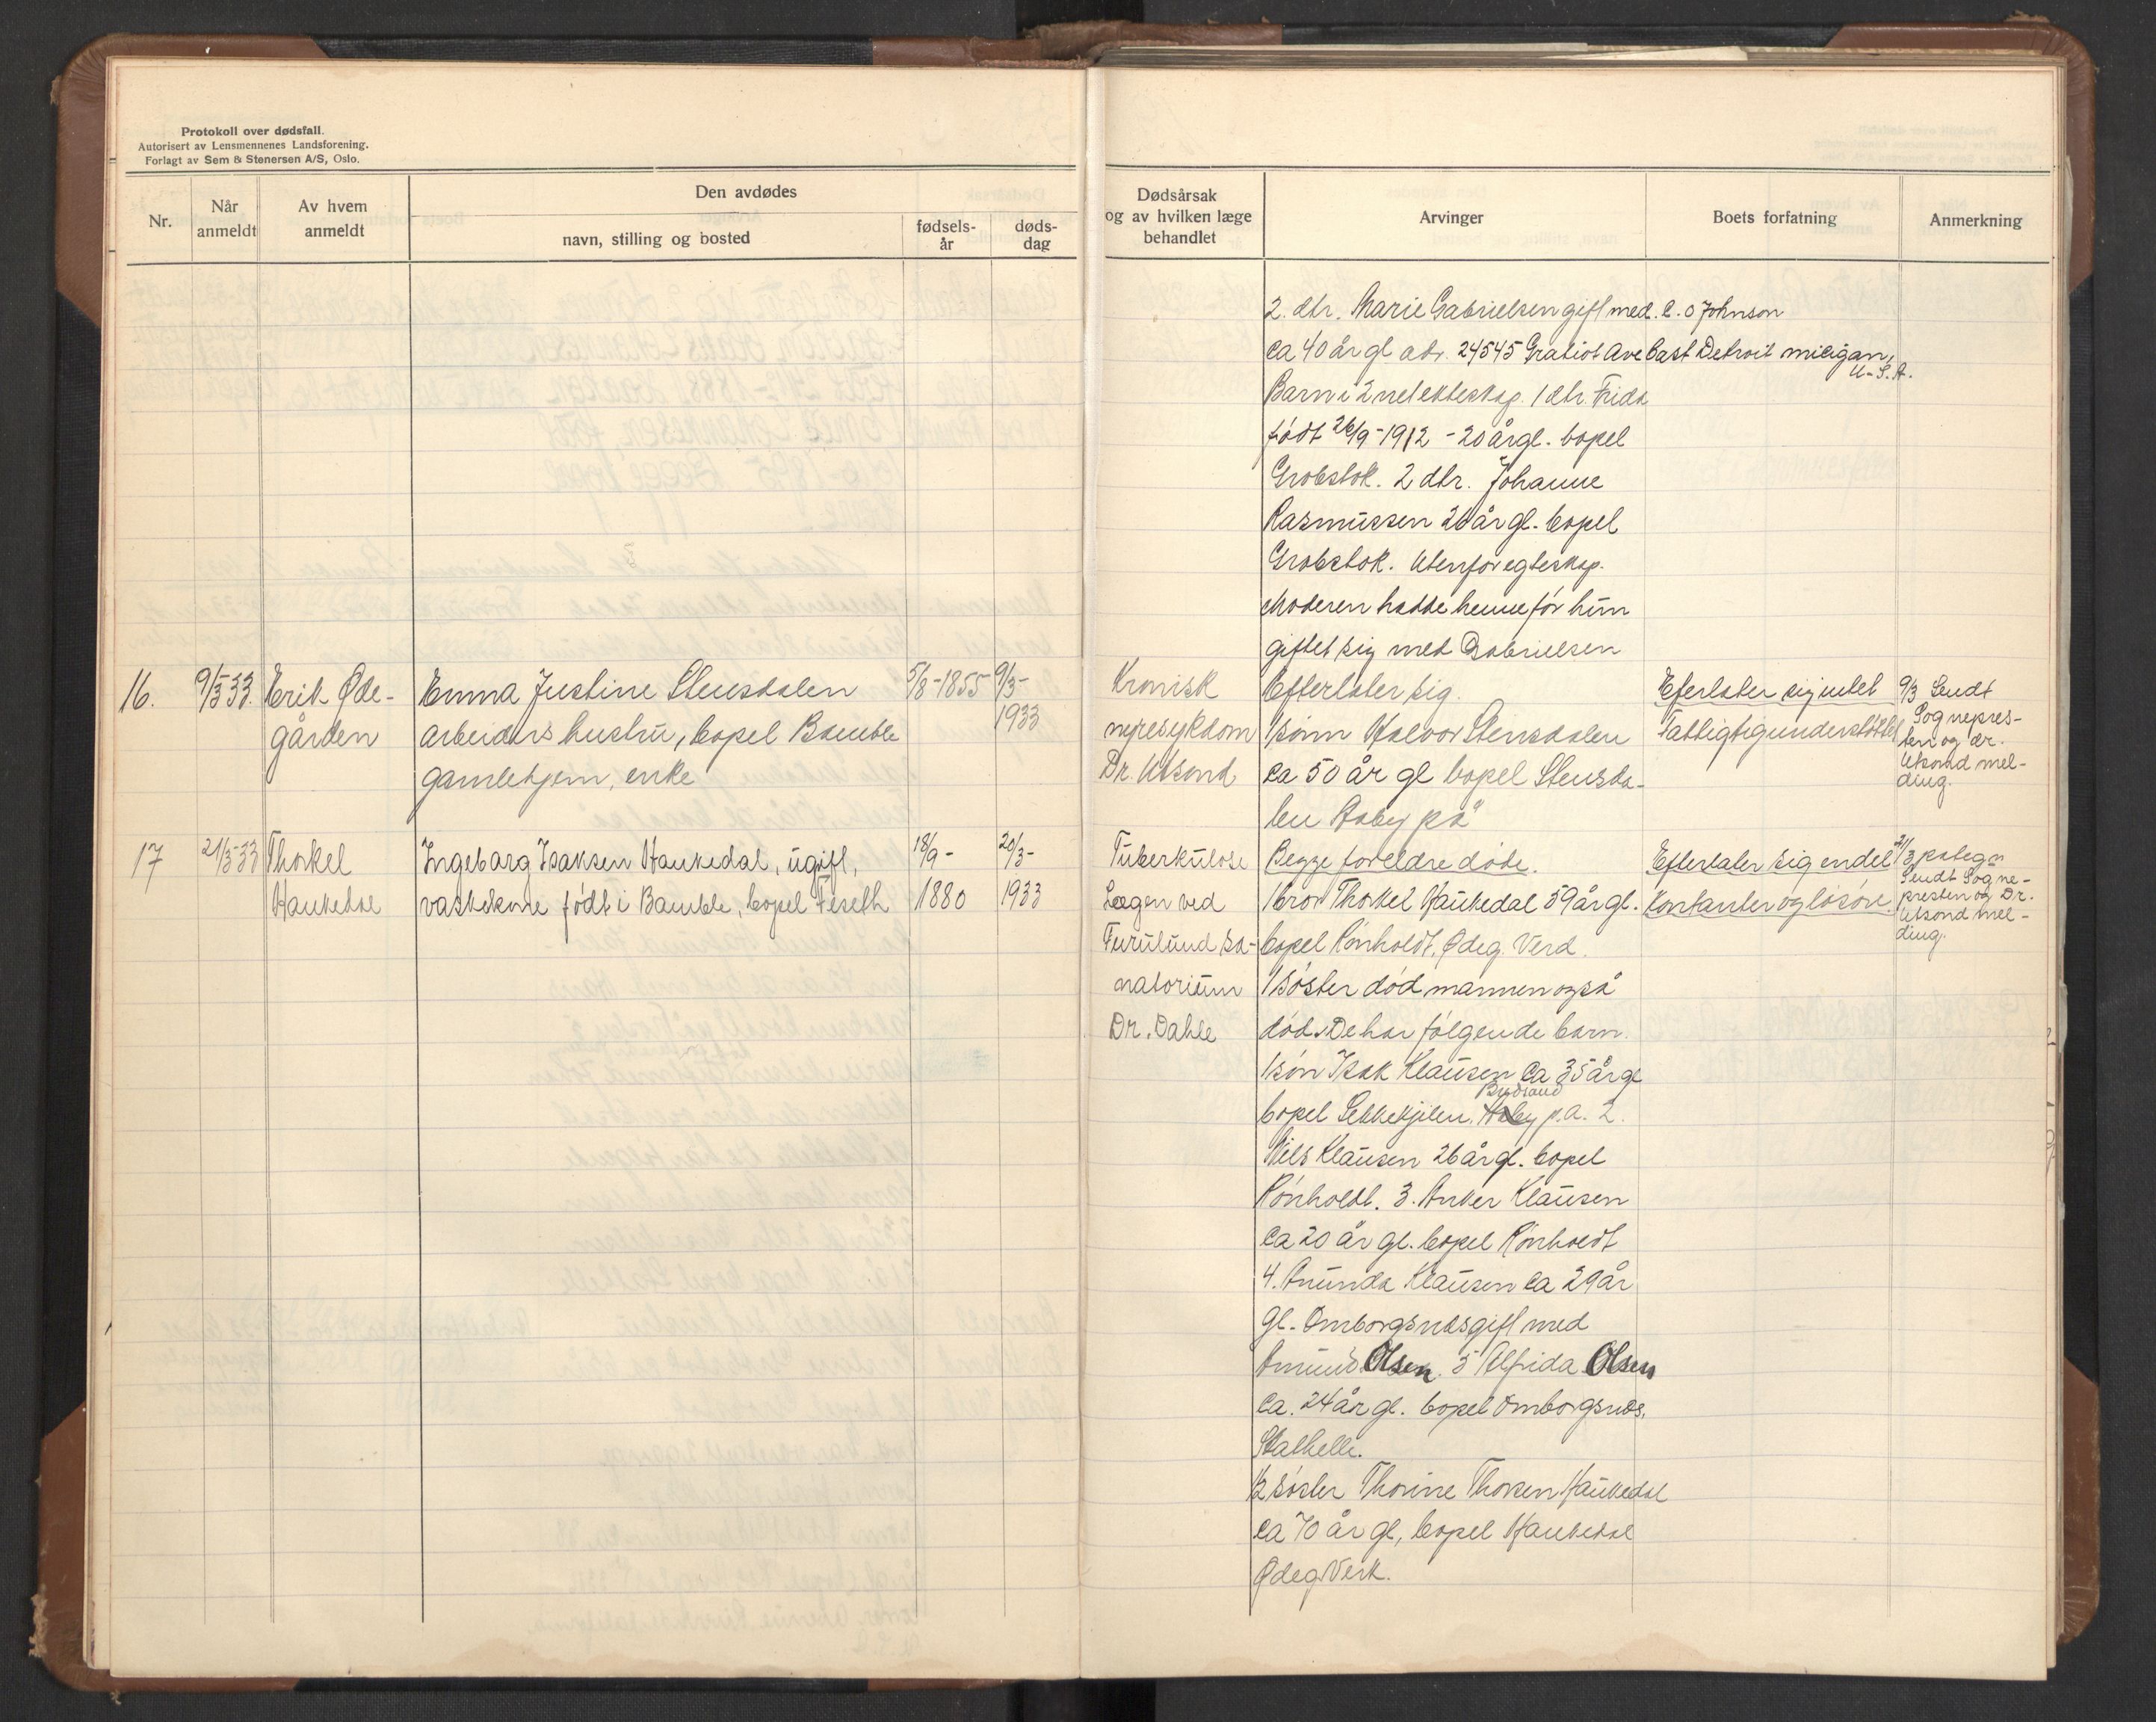 Protokoll over dødsfall.
Autorisert av Lensmennenes Landsforening.
Forlagt av Sem & Stenersen A/S, Oslo.
Nr.
Når anmeldt
Av hvem anmeldt
Den avdødes
navn, stilling og bosted
fødsels-
år
døds-
dag
Dødsårsak
og av hvilken læge
behandlet
Arvinger
Boets forfatning
Anmerkning
2. dtr. Marie Gabrielsen gift med. C. O Johnson
Ca 40 år gl adr. 24545 Gratiot Ave East Detroit micigan,
U-S.A.
Barn i 2net ekteskap. 1 dtr. Frida
født 26/9-1912 - 20 år gl. bopel
Grobstok. 2 dtr. Johanne
Rasmussen 26 år gl. bopel
Grobstok. Utenfor egteskap.
Moderen hadde henne før hun
giftet sig med Gabrielsen
16.
9/3-33.
Erik Øde-
gården
Emma Justine Stensdalen
arbeiders hustru, bopel Bamble
gamlehjem, enke
5/8-1855
9/3-
1933
Kronisk
nyresykdom
Dr. Utsond
Efterlater sig.
1 sønn Halvor Stensdalen
ca 50 år gl bopel Stensda-
len Haby på
Eferlater sig intet
Fattigtigunderstøttet
9/3 Sendt
Sognepres-
ten og dr.
Utsond mel-
ding.
17
21/3-33
Thorkel
Haukedal
Ingeborg Isaksen Haukedal, ugift,
vaskekone født i Bamble, bopel Feseth
18/9-
1880
20/3-
1933
Tuberkulose
Lægen ved
Furulund sa-
natorium
Dr. Dahle
Begge foreldre døde.
1 bror Thorkel Haukedal 59 år gl.
bopel Rønholdt, Ødeg. Verd.
1 søster død mannen også
død. De har følgende barn.
1 søn Isak Klausen ca 35 år gl
Bydsand
bopel Sekkekjilen, Haby p.a. 2.
Nils Klausen 26 år gl. bopel
Rønholdt. 3. Anker Klausen
Ca 20 år gl. bopel Rønholdt
4. Anunda Klausen ca 29 år
gl. Omborgsnes gift med
Amund Olsen. 5 Alfrida Olsen
Ca. 24 år gl. bopel Omborgsnes,
Stathelle.
1/2 søster Thorine Thorsen Haukedal
ca 70 år gl, bopel Haukedal
Ødeg Verk.
Efterlater sig endel
kontanter og løsøre.
21/3 påtegn
Sendt Sogne-
presten og Dr.
Utsond mel-
ding.